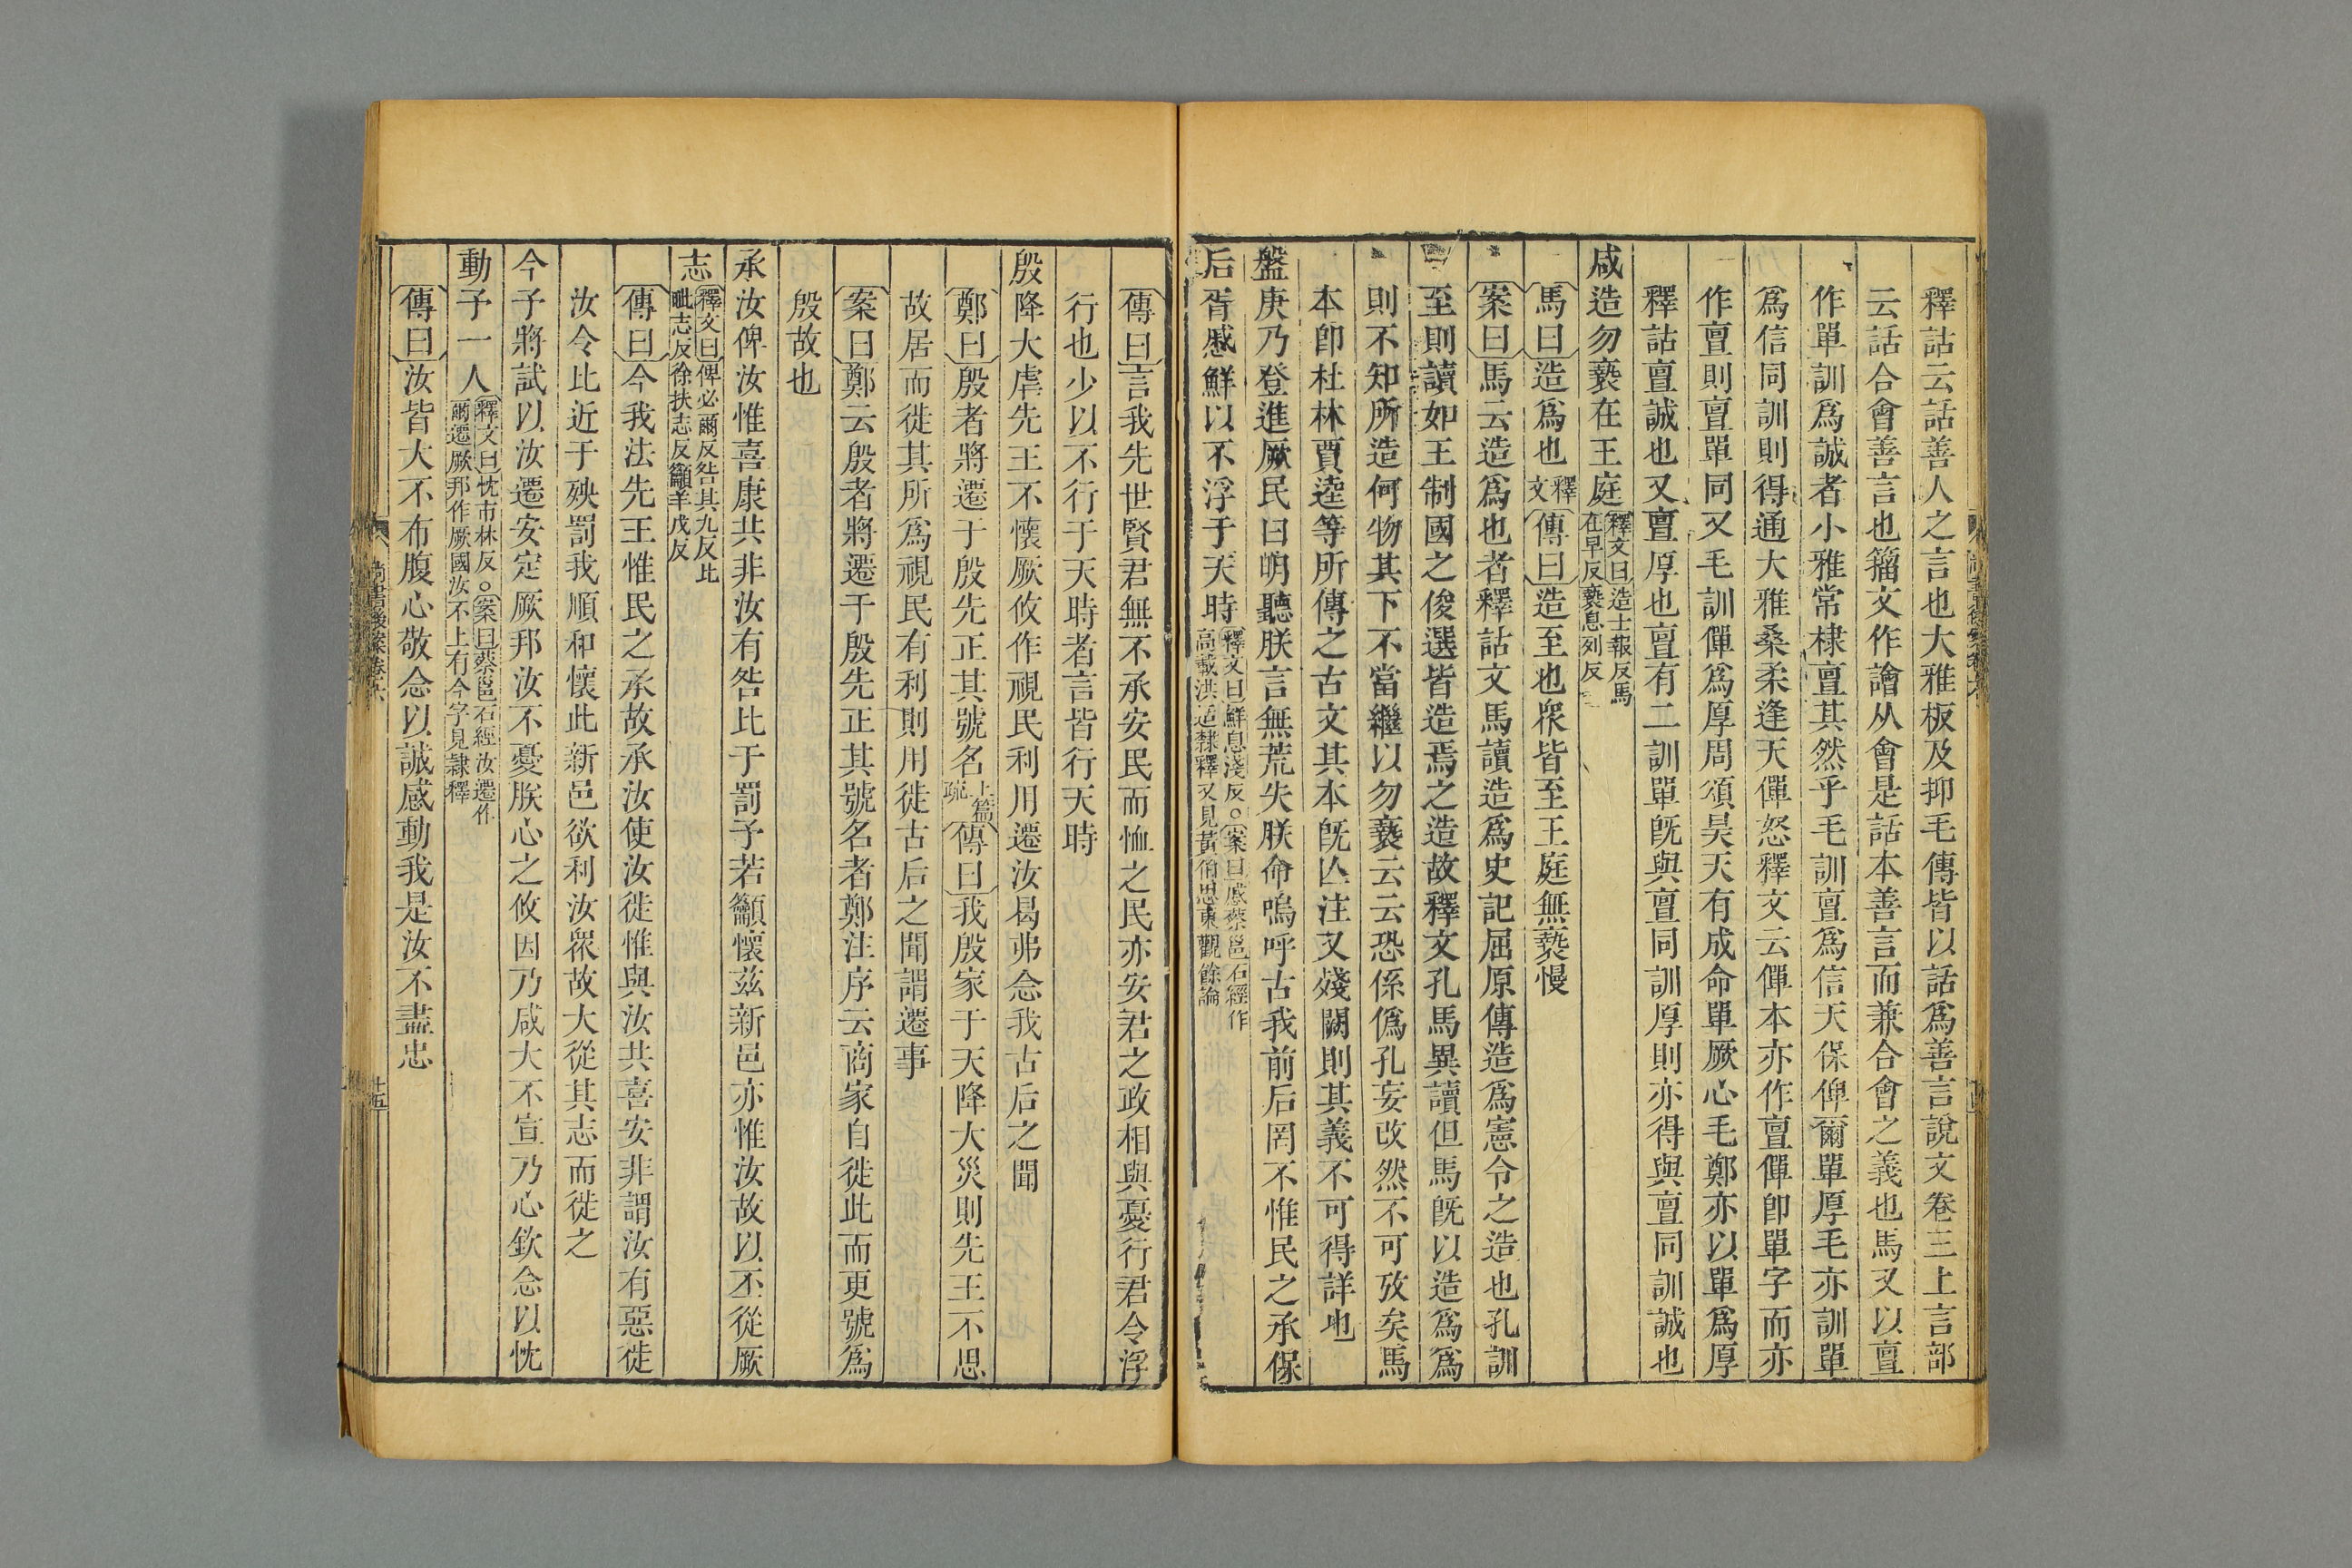 釋詁云話善人之言也大雅板及抑毛傳皆以話爲善言說文卷三上言部
云話合會善言也籀文作譮从會是話本善言而兼合會之義也馬又以亶
作單訓爲誠者小雅常棣亶其然乎毛訓亶爲信天保俾爾單厚毛亦訓單
爲信同訓則得通大雅桑柔逢天僤怒釋文云僤本亦作亶僤卽單字而亦
作亶則亶單同又毛訓僤爲厚周頌昊天有成命單厥心毛鄭亦以單爲厚
釋詁亶誠也又亶厚也亶有二訓單旣與亶同訓厚則亦得與亶同訓誠也
咸造勿褻在王庭釋文曰造士報反馬在早反褻息列反
馬曰造爲也釋文傳曰造至也衆皆至王庭無褻慢
案曰馬云造爲也者釋詁文馬讀造爲史記屈原傳造爲憲令之造也孔訓
至則讀如王制國之俊選皆造焉之造故釋文孔馬異讀但馬旣以造爲爲
則不知所造何物其下不當繼以勿褻云云恐係僞孔妄改然不可攷矣馬
本卽杜林賈逵等所傳之古文其本旣亾注又殘闕則其義不可得詳也
盤庚乃登進厥民曰明聽朕言無荒失朕命嗚呼古我前后罔不惟民之承保
后胥慼鮮以不浮于天時釋文曰鮮息淺反○案曰慼蔡邕石經作高載洪适隸釋又見黃伯思東觀餘論
傳曰言我先世賢君無不承安民而恤之民亦安君之政相與憂行君令浮
行也少以不行于天時者言皆行天時
殷降大虐先王不懷厥攸作視民利用遷汝曷弗念我古后之聞
鄭曰殷者將遷于殷先正其號名上篇疏傳曰我殷家于天降大災則先王不思
故居而徙其所爲視民有利則用徙古后之聞謂遷事
案曰鄭云殷者將遷于殷先正其號名者鄭注序云商家自徙此而更號爲
殷故也
承汝俾汝惟喜康共非汝有咎比于罰予若籲懷茲新邑亦惟汝故以丕從厥
志釋文曰俾必爾反咎其九反比毗志反徐扶志反籲羊戍反
傳曰今我法先王惟民之承故承汝使汝徙惟與汝共喜安非謂汝有惡徙
汝令比近于殃罰我順和懷此新邑欲利汝衆故大從其志而徙之
今予將試以汝遷安定厥邦汝不憂朕心之攸因乃咸大不宣乃心欽念以忱
動予一人釋文曰忱市林反○案曰蔡邕石經汝遷作爾遷厥邦作厥國汝不上有今字見隸釋
傳曰汝皆大不布腹心敬念以誠感動我是汝不盡忠
尚書後案卷六
十五